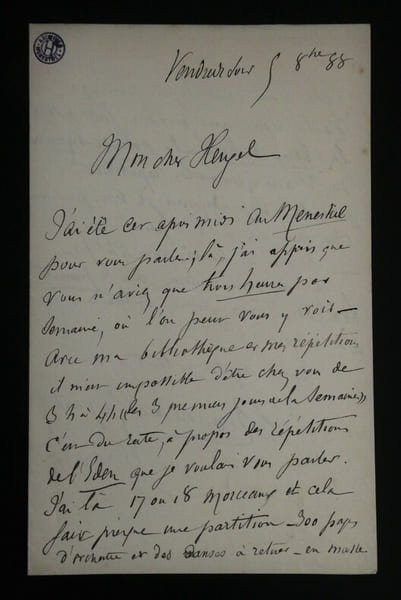 Vendredi soir 5 8bre 88
Mon cher Heugel
J'ai été cet après midi au Menestrel
pour vous parler; là, j'ai appris que
vous n'aviez que trois heures par
semaine, où l'on peut vous y voir —
Avec ma bibliothèque et mes répétitions
il m'est impossible d'être chez vous de
3 h à 4 h (les 3 premiers jours de la semaine)
C'est du reste, à propos des répétitions
de l'Eden que je voulais vous parler.
J'ai là 17 ou 18 morceaux et cela
fait presque une partition — 300 pages
d'orchestre et des Danses à retirer — en masse